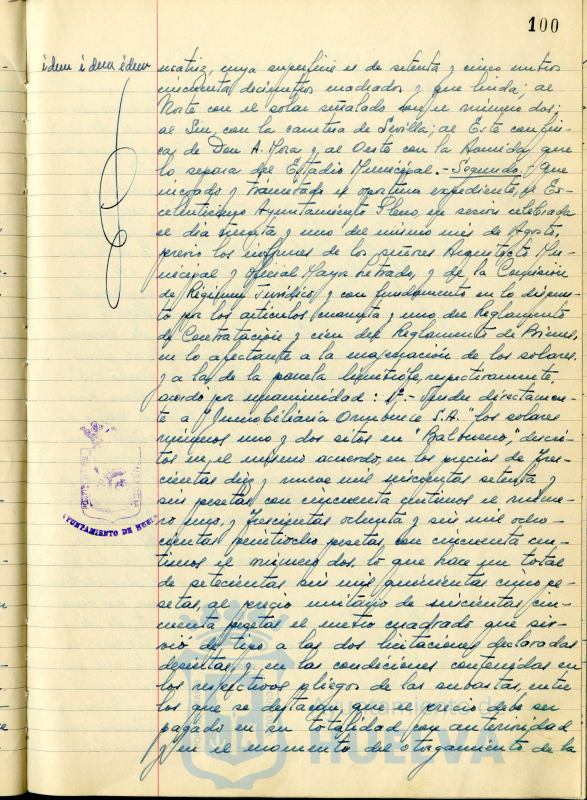 100
idem idem idem
matriz, cuya superficie es de setenta y cinco metros
cincuenta decímetros cuadrados y que linda; al
Norte con el solar señalado con el número dos;
al Sur, con la carretera de Sevilla; al Este con fin-
cas de Don A. Mora y al Oeste con la Avenida que
lo separa del Estadio Municipal.- Segundo.- Que
incoado y tramitado el oportuno expediente, el Ex-
celentísimo Ayuntamiento Pleno, en sesión celebrada
el día treinta y uno del mismo mes de Agosto,
previo los informes de los señores Arquitecto Mu-
nicipal y Oficial Mayor Letrado, y de la Comisión
de Régimen Jurídico y con fundamento en lo dispues-
to por los artículos cuarenta y uno del Reglamento
de Contratación y cien del Reglamento de Bienes,
en lo afectante a la enajenación de los solares
y a la de la parcela limítrofe, respectivamente,
acordó por unanimidad: 1º.- Vender directamen-
te a "Inmobiliaria Onubense S.A." los solares
números uno y dos sitos en "Balbueno", descri-
tos en el mismo acuerdo, en los precios de tres-
cientas diez y nueve mil seiscientas setenta y
seis pesetas con cincuenta céntimos el núme-
ro uno, y trescientas ochenta y seis mil ocho-
cientas veintiocho pesetas, con cincuenta cén-
timos el número dos, lo que hace un total
de setecientas seis mil quinientas cinco pe-
setas, al precio unitario de seiscientas cin-
cuenta pesetas el metro cuadrado que sir-
vió de tipo a las dos licitaciones declaradas
desiertas, y en las condiciones contenidas en
los respectivos pliegos de las subastas, entre
los que se destacan, que el precio debe ser
pagado en su totalidad con anterioridad
y en el momento del otorgamiento de la
AYUNTAMIENTO DE HUEL
Ayuntamiento de
HUELVA